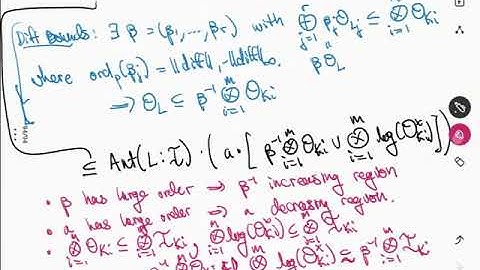 Diff bounds: ∃ β = (β₁, ..., βᵣ) with ⊕_{j=1}^{r} βⱼ 𝒪_{Lⱼ} ⊆ ⊗_{i=1}^{m} 𝒪_{Kᵢ}
where ord_p(βⱼ) = ||diff||₁ - ||diff||_∞. β 𝒪_L
⟹ 𝒪_L ⊆ β⁻¹ ⊗_{i=1}^{m} 𝒪_{Kᵢ}
⊆ Aut(L:ℐ) · (a · [β⁻¹ ⊗_{i=1}^{m} 𝒪_{Kᵢ} ∪ ⊗_{i=1}^{m} log(𝒪^×_{Kᵢ})])
• β has large order ⟹ β⁻¹ increasing region
• a has large order ⟹ a decreasing region.
• ⊗_{i=1}^{m} 𝒪_{Kᵢ} ⊆ ⊗_{i=1}^{m} ℐ_{Kᵢ}, ⊗_{i=1}^{m} log(𝒪^×_{Kᵢ}) ⊆ ⊗_{i=1}^{m} ℐ_{Kᵢ}